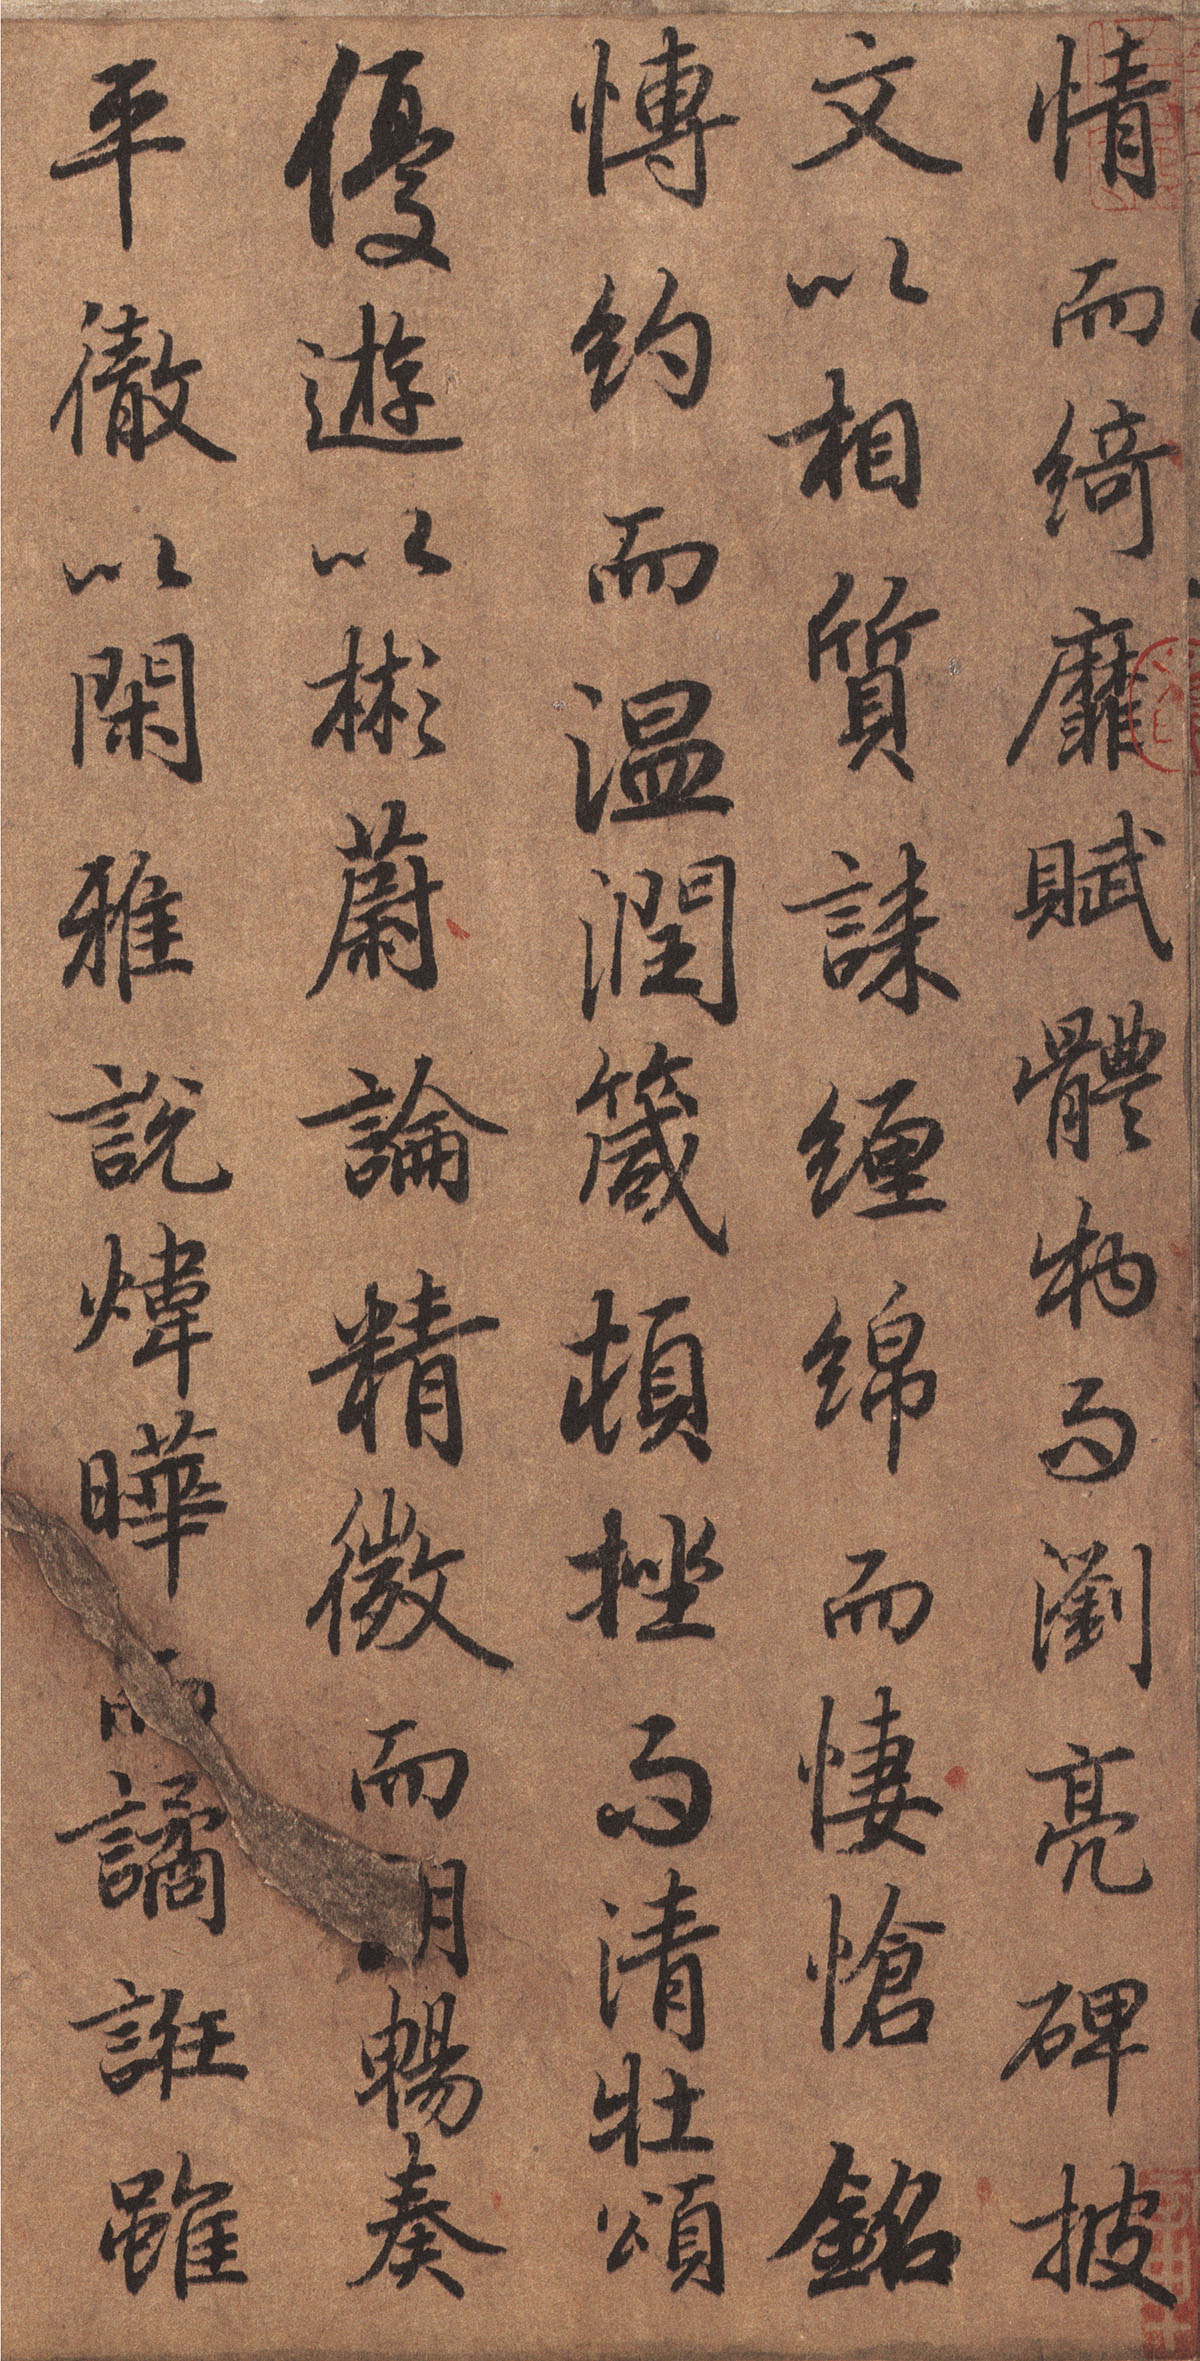 情而綺靡賦體物而瀏亮碑披
文以相質誄纏綿而悽愴銘
博約而温潤箴頓挫而清壯頌
優遊以彬蔚論精微而朗暢奏
平徹以閑雅說煒曄而譎誑雖